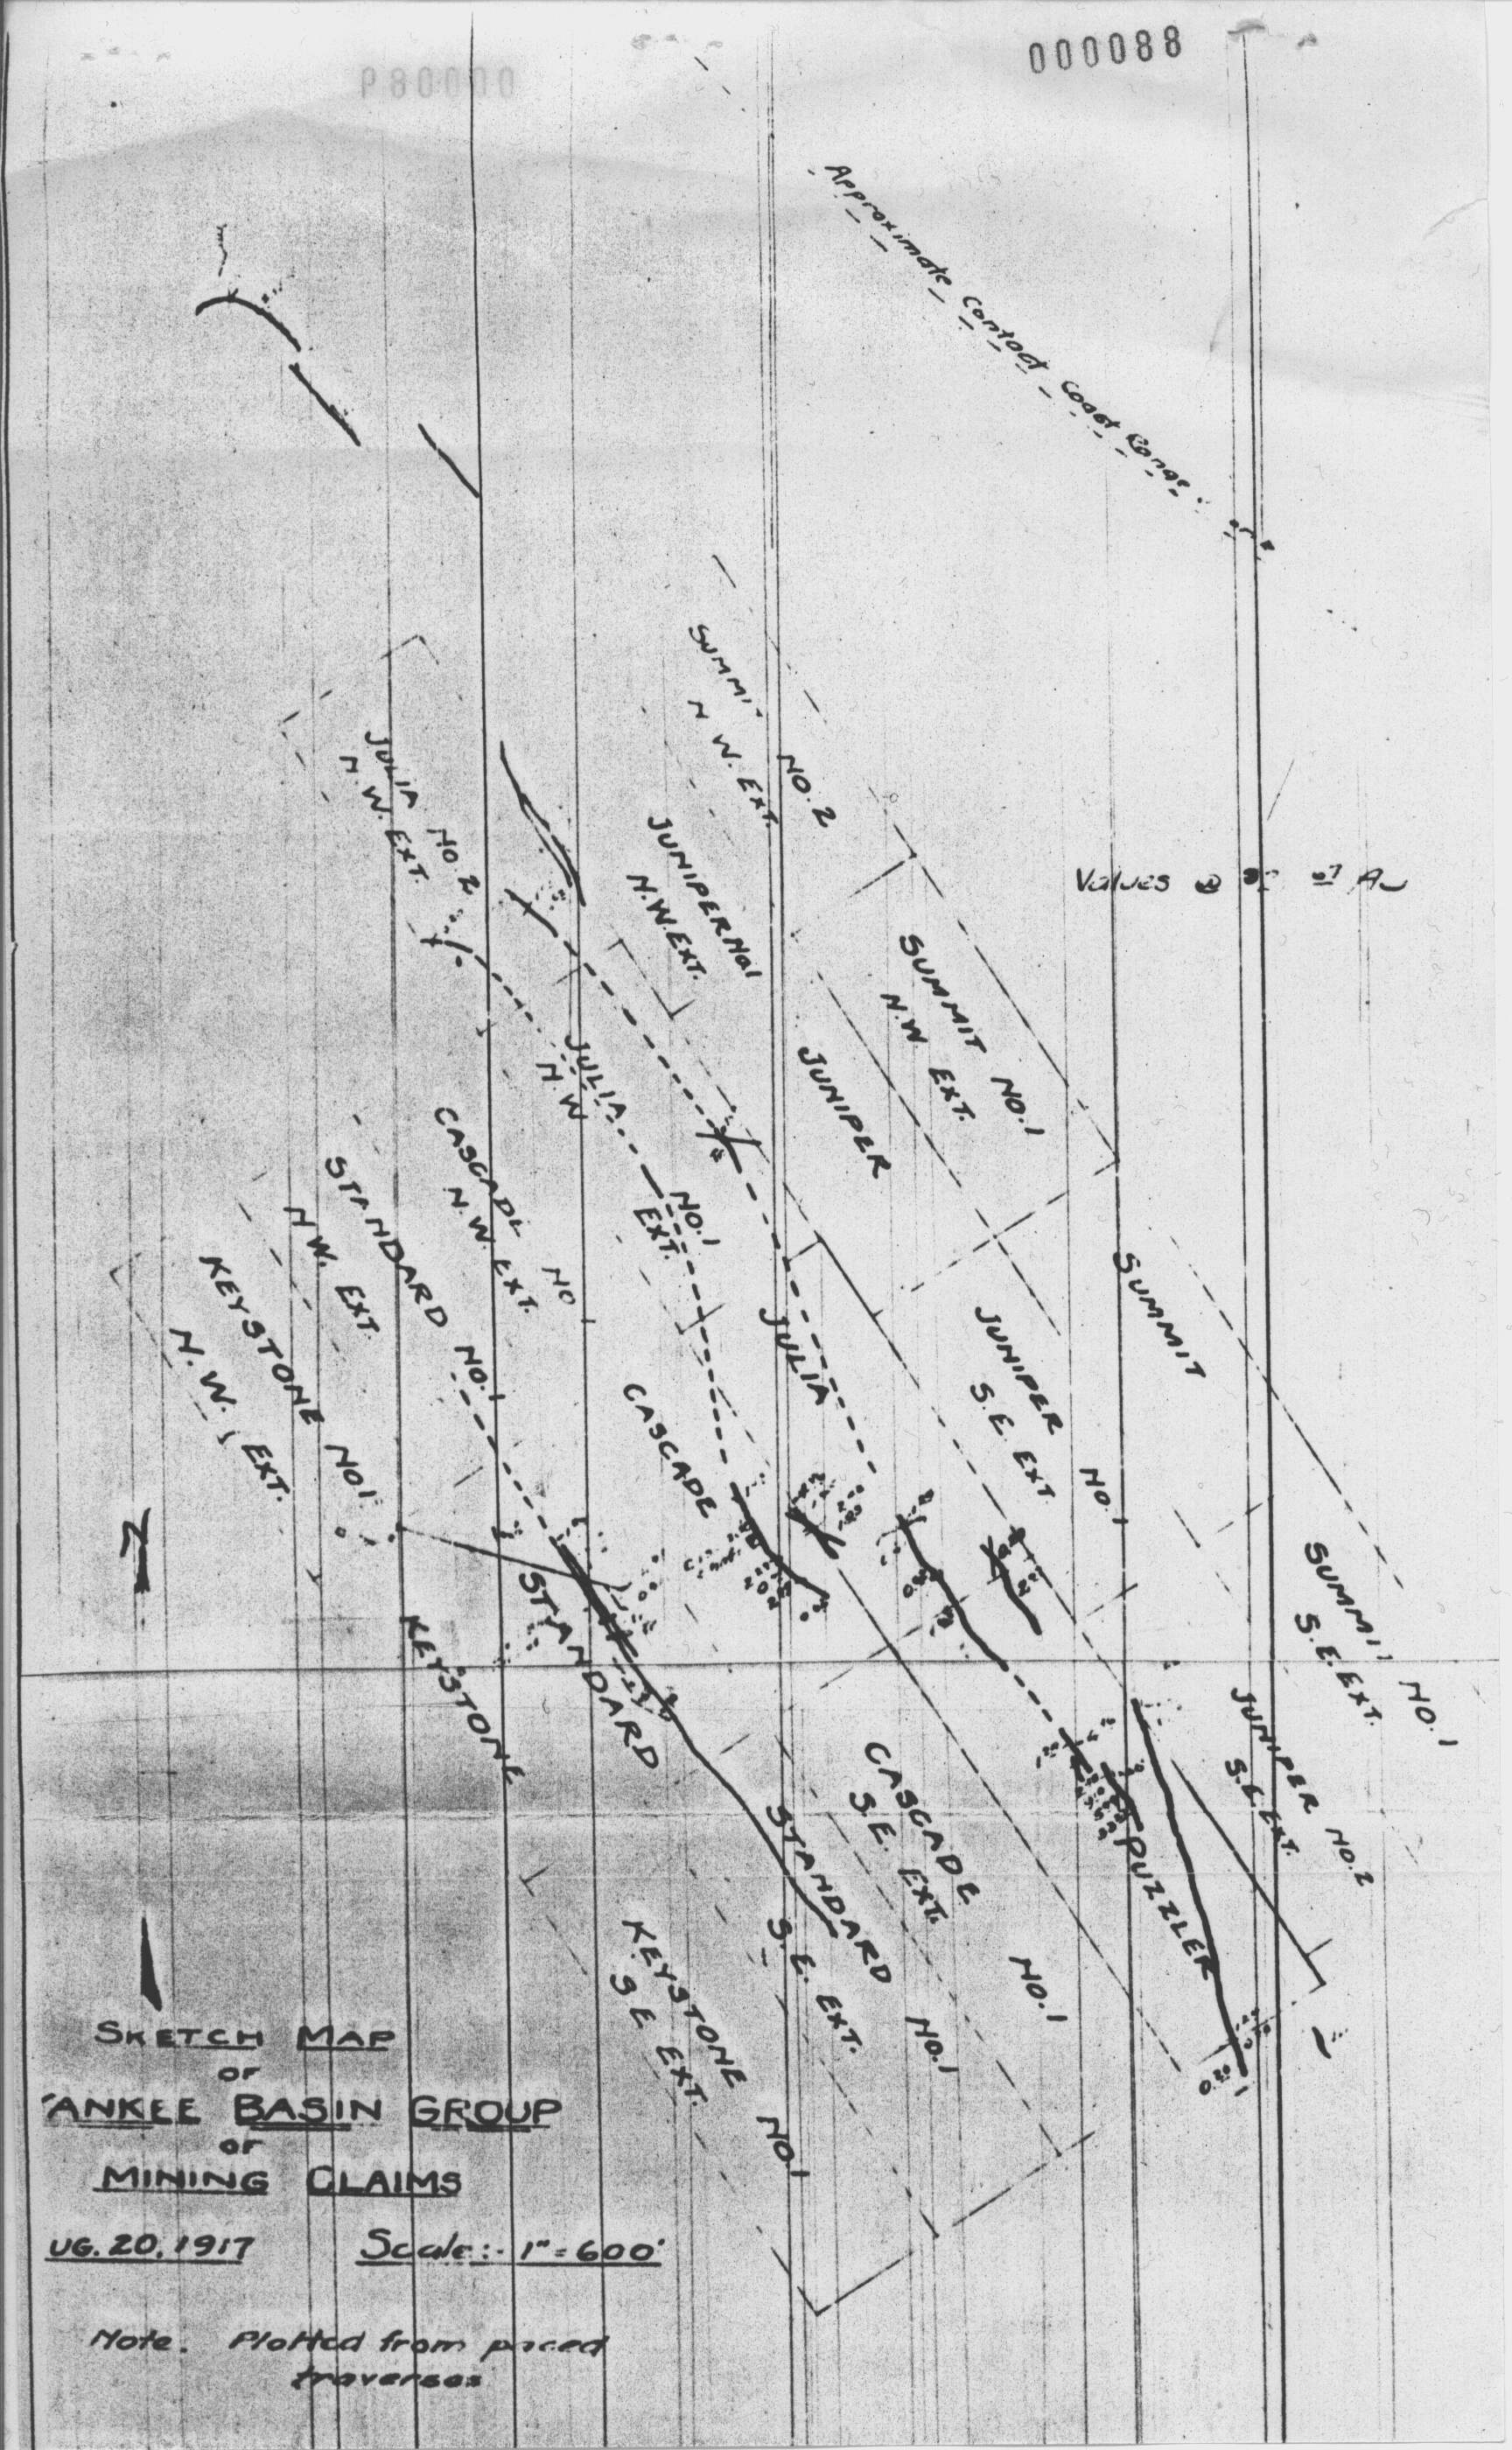 000088
Approximate Contact Coast Range
SUMMI
NO. 2
N W. EXT.
JULIA NO. 2
N.W. EXT.
JUNIPER NO1
N.W. EXT.
Values @ Au
SUMMIT NO. 1
N.W EXT.
JUNIPER
JULIA NO. 1
N.W EXT.
CASCADE NO
N.W. EXT.
STANDARD NO. 1
N W. EXT.
KEYSTONE NO1
N. W. EXT.
SUMMIT
JULIA
JUNIPER NO. 1
S.E. EXT
CASCADE
N
STANDARD
KEYSTONE
SUMMIT NO. 1
S.E. EXT.
JUNIPER NO. 2
S.E. EXT.
PUZZLER
CASCADE NO. 1
S.E. EXT.
STANDARD NO. 1
S.E. EXT.
KEYSTONE NO. 1
S E EXT.
SKETCH MAP
OF
ANKEE BASIN GROUP
OF
MINING CLAIMS
UG. 20, 1917 Scale:- 1" = 600'
Note. Plotted from paced
traverses